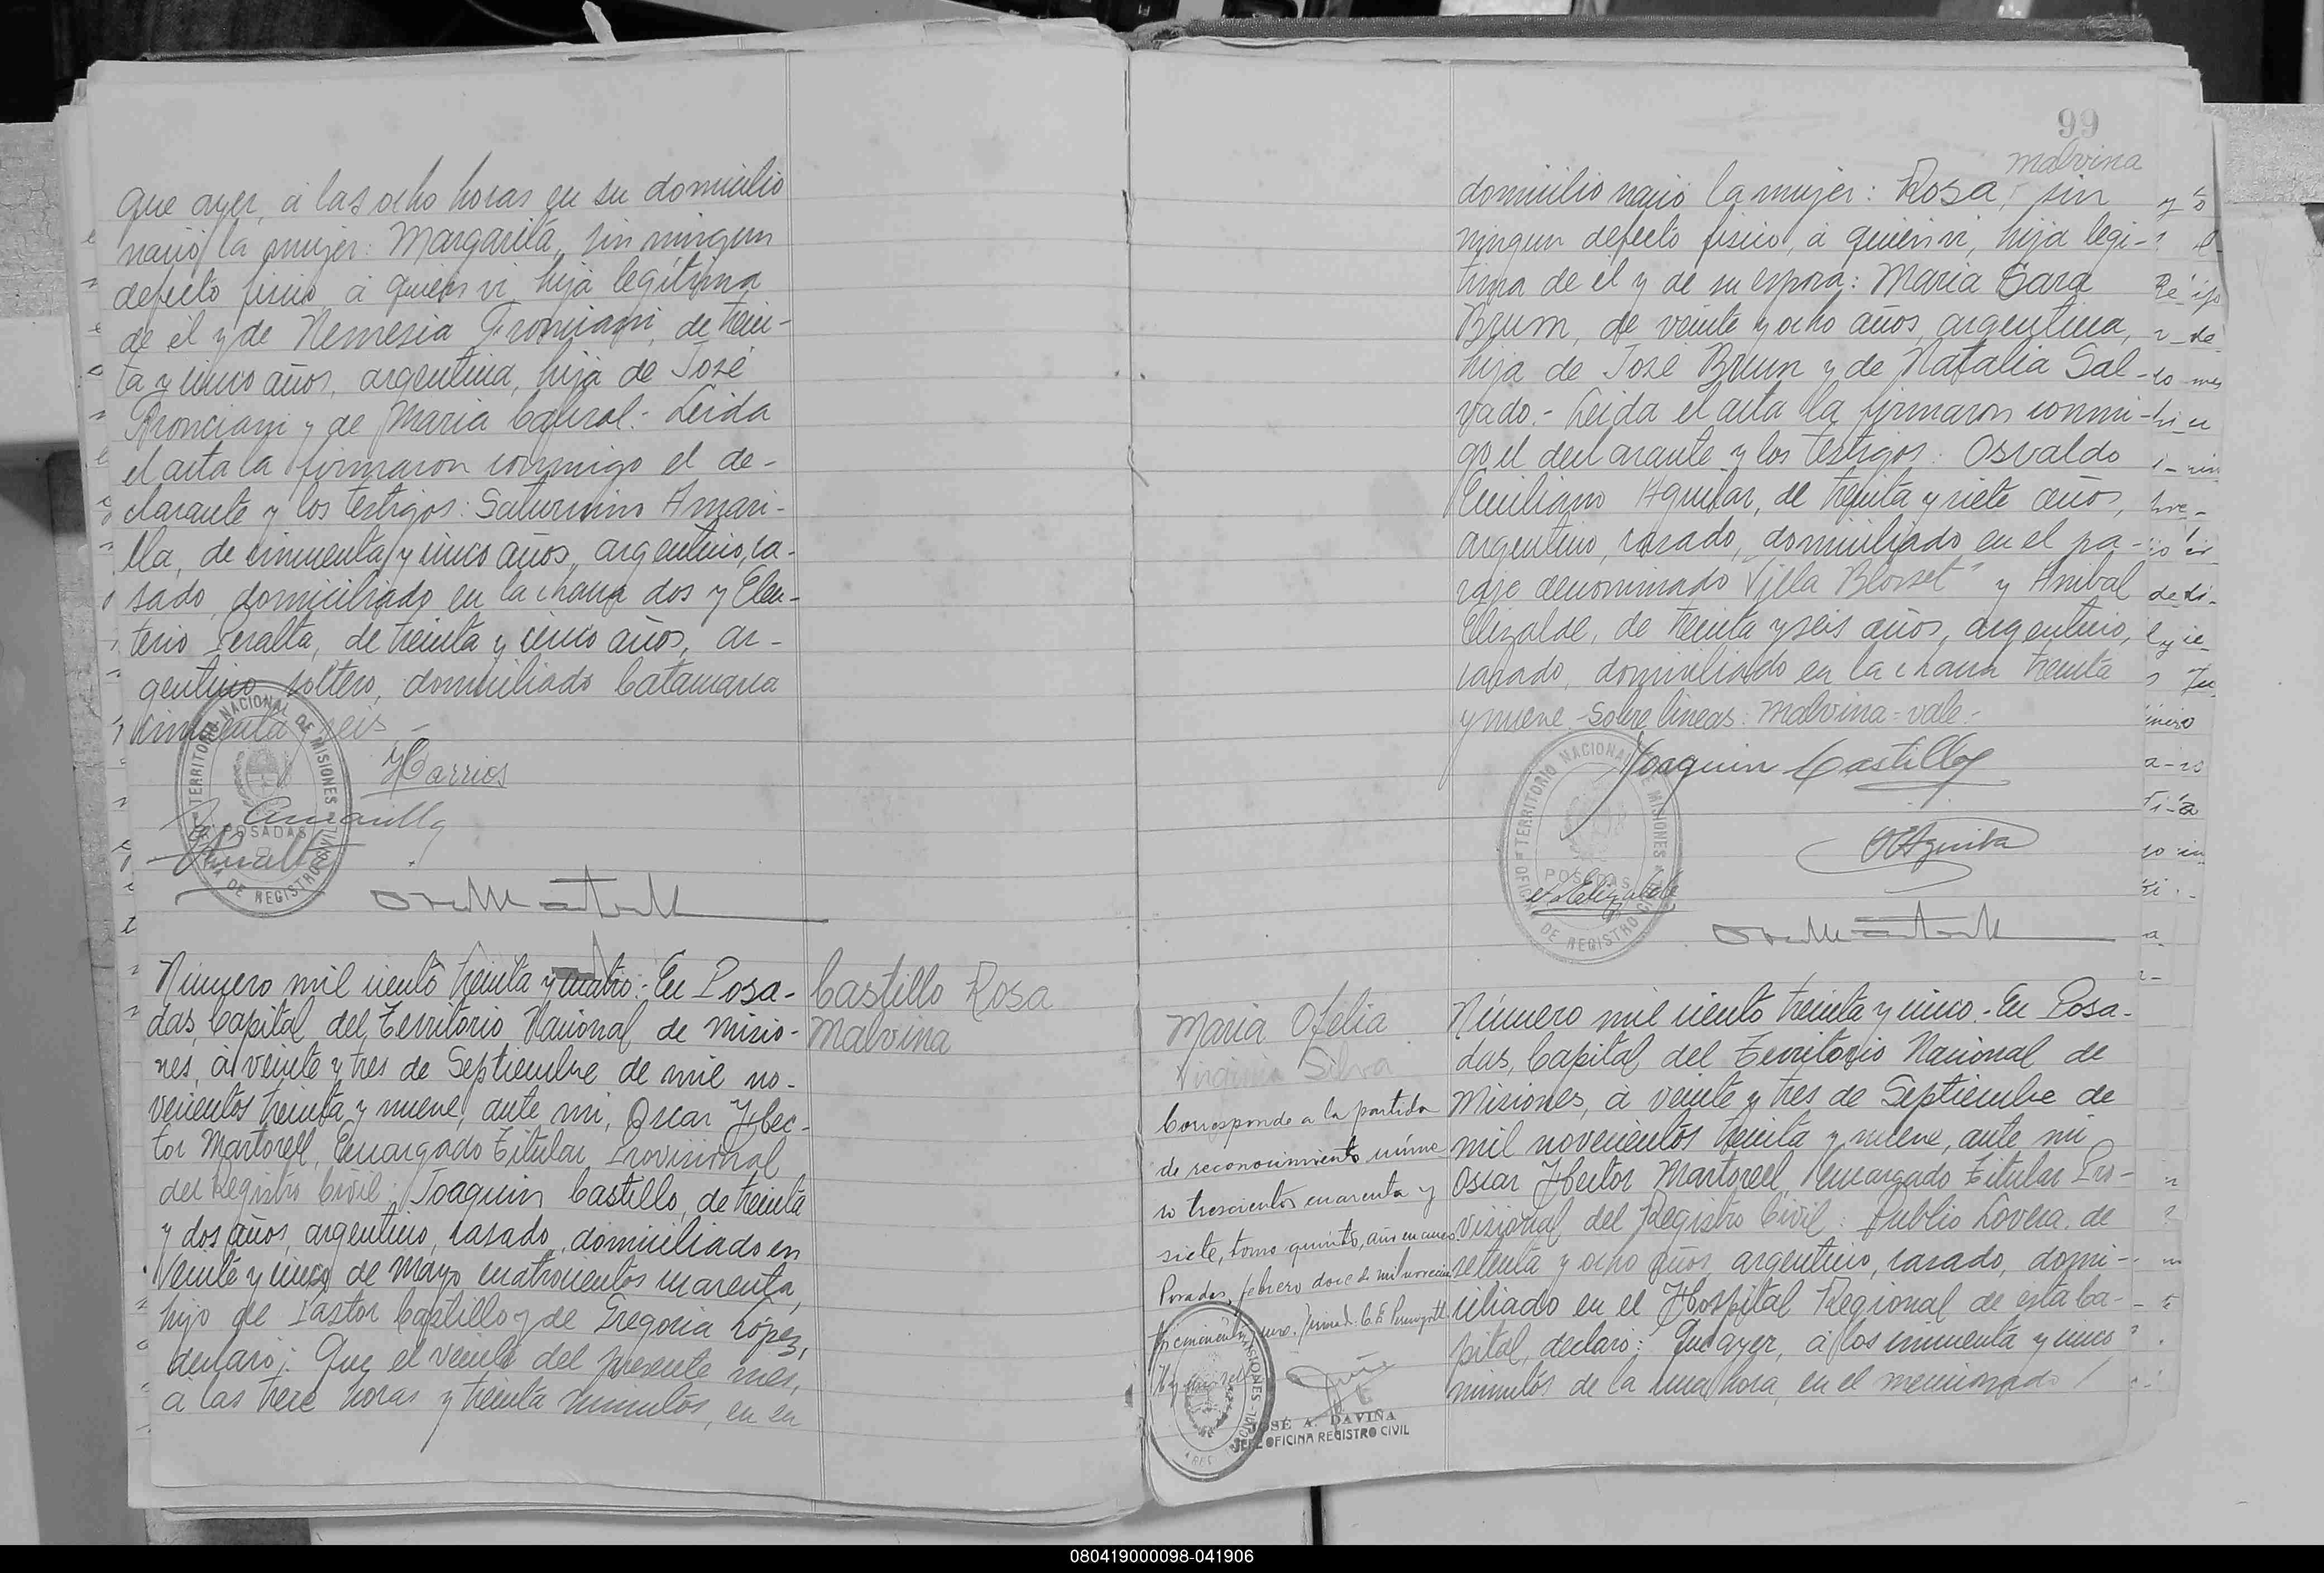 que ayer, á las ocho horas en su domicilio
nació la mujer: Margarita, sin ningun
defecto fisico, á quien vi, hija legítima
de él y de Nemesia Fronciani, de trein-
ta y cinco años, argentina, hija de José
Fronciani y de Maria Cabral.- Leida
el acta la firmaron conmigo el de-
clarante y los testigos: Saturnino Amari-
lla, de cincuenta y cinco años, argentino, ca-
sado, domiciliado en la chacra dos y Eleu-
terio Peralta, de treinta y cinco años, ar-
gentino, soltero, domiciliado Catamarca
cincuenta y seis.-
HBarrios
Amarilla
Peralta
TERRITORIO NACIONAL DE MISIONES
POSADAS
OFICINA DE REGISTRO CIVIL
Número mil ciento treinta y cuatro.- En Posa-
das, Capital del Territorio Nacional de Misio-
nes, á veinte y tres de Septiembre de mil no-
vecientos treinta y nueve, ante mi, Oscar Hec-
tor Martorell, Encargado Titular Provisional
del Registro Civil: Joaquin Castillo, de treinta
y dos años, argentino, casado, domiciliado en
Veinte y cinco de Mayo cuatrocientos cuarenta,
hijo de Pastor Castillo y de Gregoria López,
declaró: Que el veinte del presente mes,
á las trece horas y treinta minutos, en su
Castillo Rosa
Malvina
99
Malvina
domicilio nació la mujer: Rosa, sin
ningun defecto fisico, á quien vi, hija legi-
tima de él y de su esposa: Maria Sara
Brum, de veinte y ocho años, argentina,
hija de José Brum y de Natalia Sal-
vado.- Leida el acta la firmaron conmi-
go el declarante y los testigos: Osvaldo
Emiliano Aguilar, de treinta y siete años,
argentino, casado, domiciliado en el pa-
raje denominado "Villa Blosset" y Anibal
Elizalde, de treinta y seis años, argentino,
casado, domiciliado en la chacra treinta
y nueve - Sobre lineas: Malvina = vale.-
Joaquin Castillo
TERRITORIO NACIONAL DE MISIONES
POSADAS
OFICINA DE REGISTRO CIVIL
Maria Ofelia
Virginia Silva
Corresponde a la partida
de reconocimiento núme-
ro trescientos cuarenta y
siete, tomo quinto, año en curso.
Posadas, febrero doce de mil novecien
JOSÉ A. DAVIÑA
JEFE OFICINA REGISTRO CIVIL
Número mil ciento treinta y cinco.- En Posa-
das, Capital del Territorio Nacional de
Misiones, á veinte y tres de Septiembre de
mil novecientos treinta y nueve, ante mi
Oscar Hector Martorell, Encargado Titular Pro-
visional del Registro Civil: Publio Lovera, de
setenta y ocho años, argentino, casado, domi-
ciliado en el Hospital Regional de esta Ca-
pital, declaró: Que ayer, á los cincuenta y cinco
minutos de la una hora, en el mencionado /
080419000098-041906